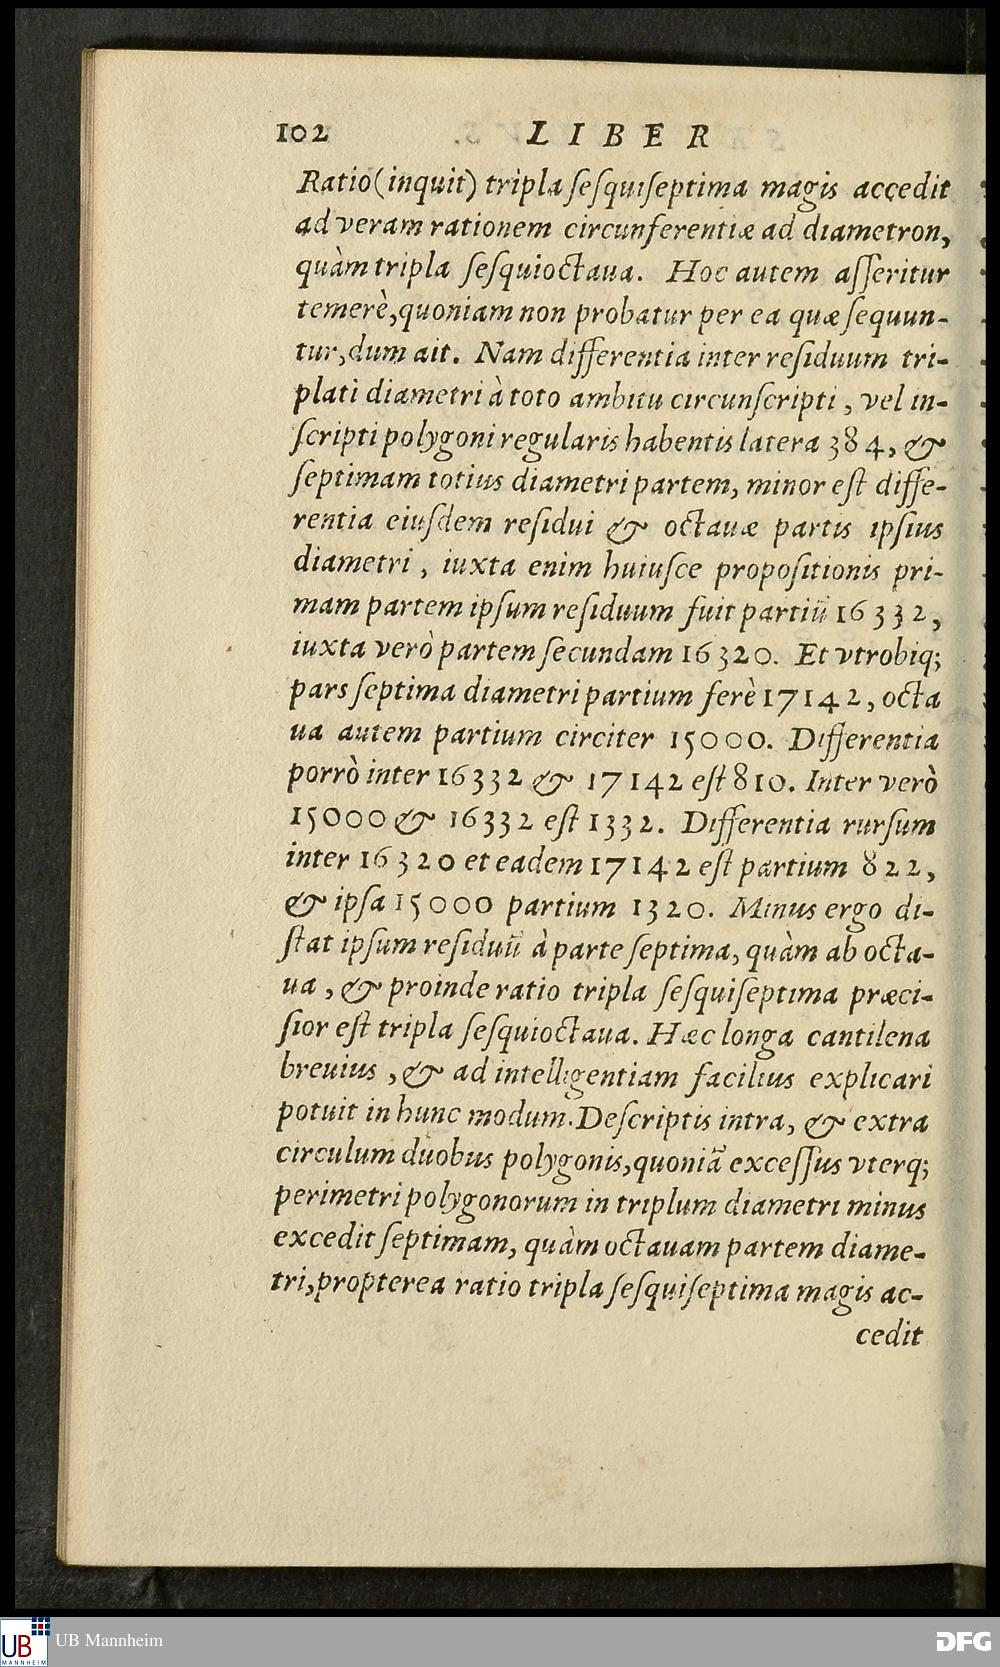 102 LIBER
Ratio (inquit) tripla ſeſquiſeptima magis accedit
ad veram rationem circunferentiæ ad diametron,
quàm tripla ſeſquioctaua. Hoc autem aſſeritur
temerè, quoniam non probatur per ea quæ ſequun-
tur, dum ait. Nam differentia inter reſiduum tri-
plati diametri à toto ambitu circunſcripti, vel in-
ſcripti polygoni regularis habentis latera 384, &
ſeptimam totius diametri partem, minor eſt diffe-
rentia eiuſdem reſidui & octauæ partis ipſius
diametri, iuxta enim huiuſce propoſitionis pri-
mam partem ipſum reſiduum fuit partiū 16332,
iuxta verò partem ſecundam 16320. Et vtrobiq;
pars ſeptima diametri partium ferè 17142, octa
ua autem partium circiter 15000. Differentia
porrò inter 16332 & 17142 eſt 810. Inter verò
15000 & 16332 eſt 1332. Differentia rurſum
inter 16320 et eadem 17142 eſt partium 822,
& ipſa 15000 partium 1320. Minus ergo di-
ſtat ipſum reſiduū à parte ſeptima, quàm ab octa-
ua, & proinde ratio tripla ſeſquiſeptima præci-
ſior eſt tripla ſeſquioctaua. Hæc longa cantilena
breuius, & ad intelligentiam facilius explicari
potuit in hunc modum. Deſcriptis intra, & extra
circulum duobus polygonis, quoniā exceſſus vterq;
perimetri polygonorum in triplum diametri minus
excedit ſeptimam, quàm octauam partem diame-
tri, propterea ratio tripla ſeſquiſeptima magis ac-
cedit
UB MANNHEIM
UB Mannheim
DFG